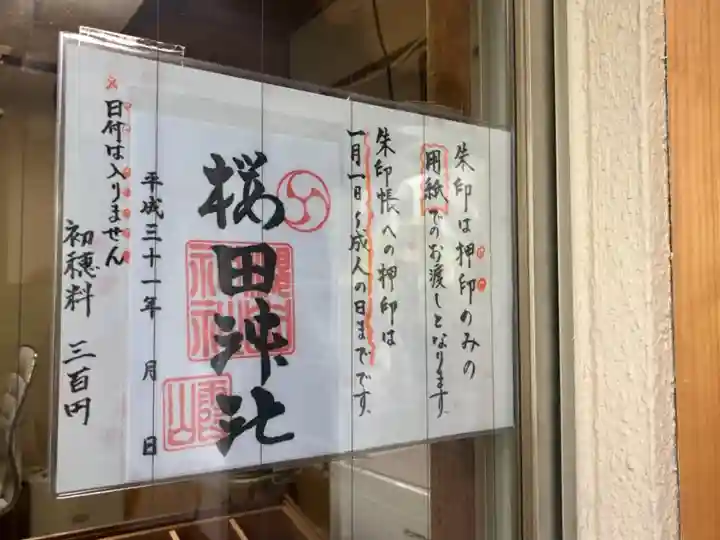 朱印は押印のみの
用紙でのお渡しとなります。
朱印帳への押印は
一月一日〜成人の日までです。
桜田神社
平成三十一年 月 日
※日付は入りません
初穂料 三百円